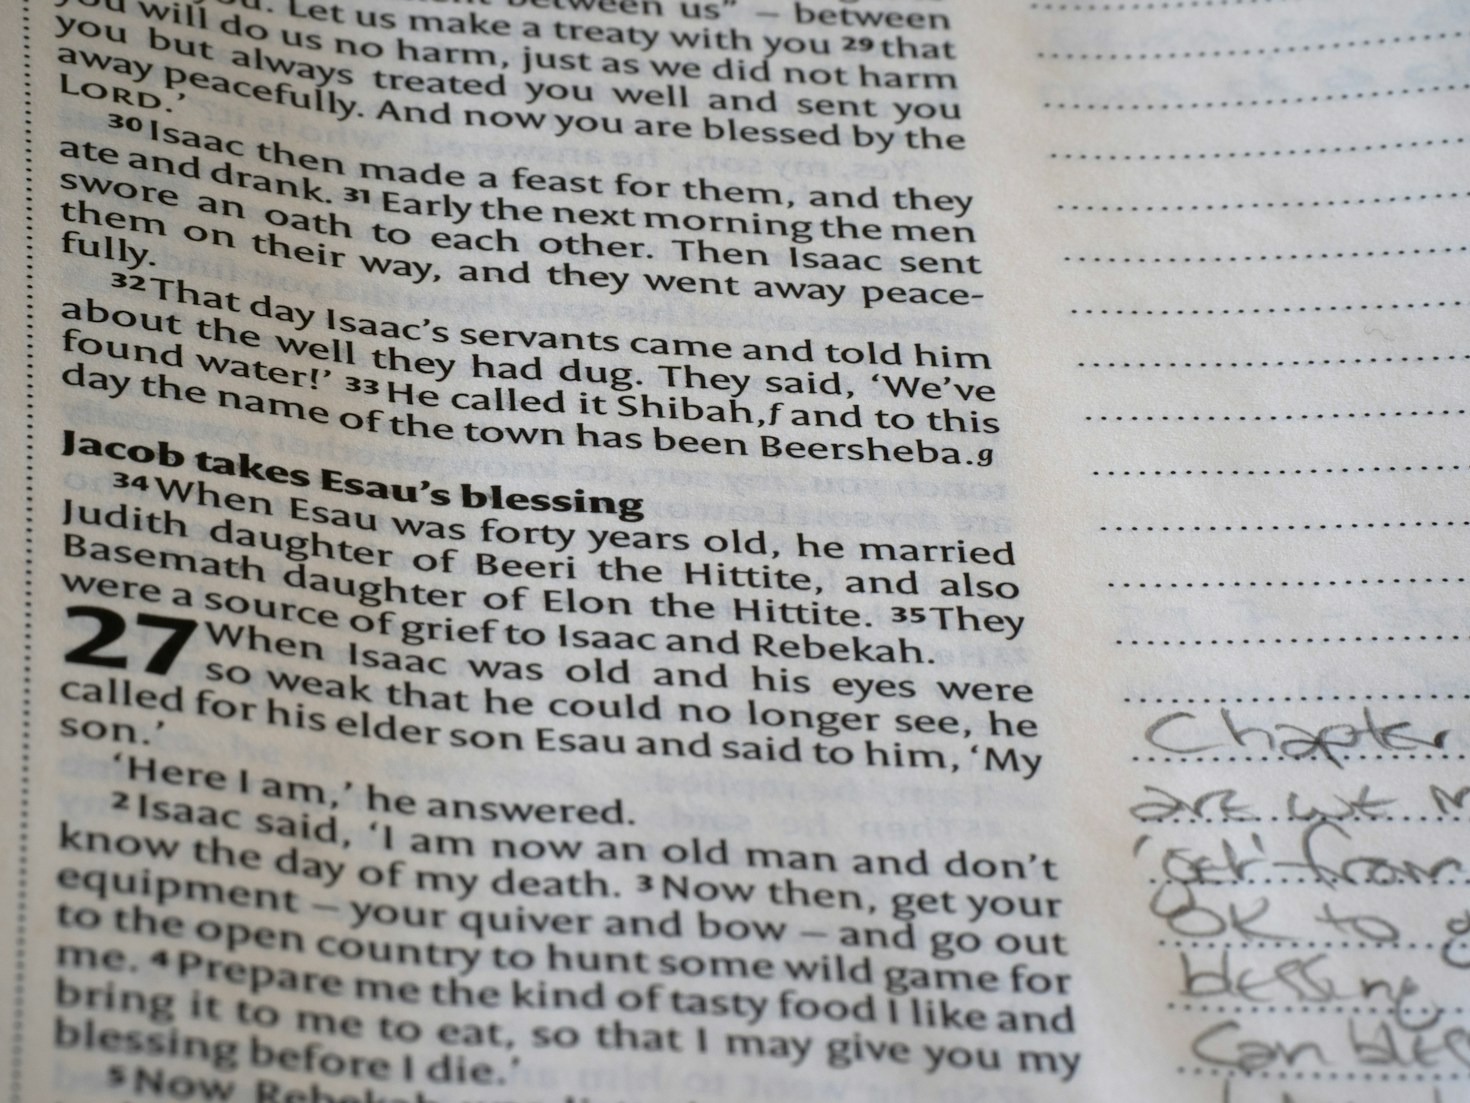 between us" – between
you. Let us make a treaty with you 29 that
you will do us no harm, just as we did not harm
you but always treated you well and sent you
away peacefully. And now you are blessed by the
LORD.’
30 Isaac then made a feast for them, and they
ate and drank. 31 Early the next morning the men
swore an oath to each other. Then Isaac sent
them on their way, and they went away peace-
fully.
32 That day Isaac’s servants came and told him
about the well they had dug. They said, ‘We’ve
found water!’ 33 He called it Shibah,f and to this
day the name of the town has been Beersheba.g
Jacob takes Esau’s blessing
34 When Esau was forty years old, he married
Judith daughter of Beeri the Hittite, and also
Basemath daughter of Elon the Hittite. 35 They
were a source of grief to Isaac and Rebekah.
27 When Isaac was old and his eyes were
so weak that he could no longer see, he
called for his elder son Esau and said to him, ‘My
son.’
‘Here I am,’ he answered.
2 Isaac said, ‘I am now an old man and don’t
know the day of my death. 3 Now then, get your
equipment – your quiver and bow – and go out
to the open country to hunt some wild game for
me. 4 Prepare me the kind of tasty food I like and
bring it to me to eat, so that I may give you my
blessing before I die.’
5 Now Rebekah
Chapter
are we
'get' from
OK to
blessing
Can